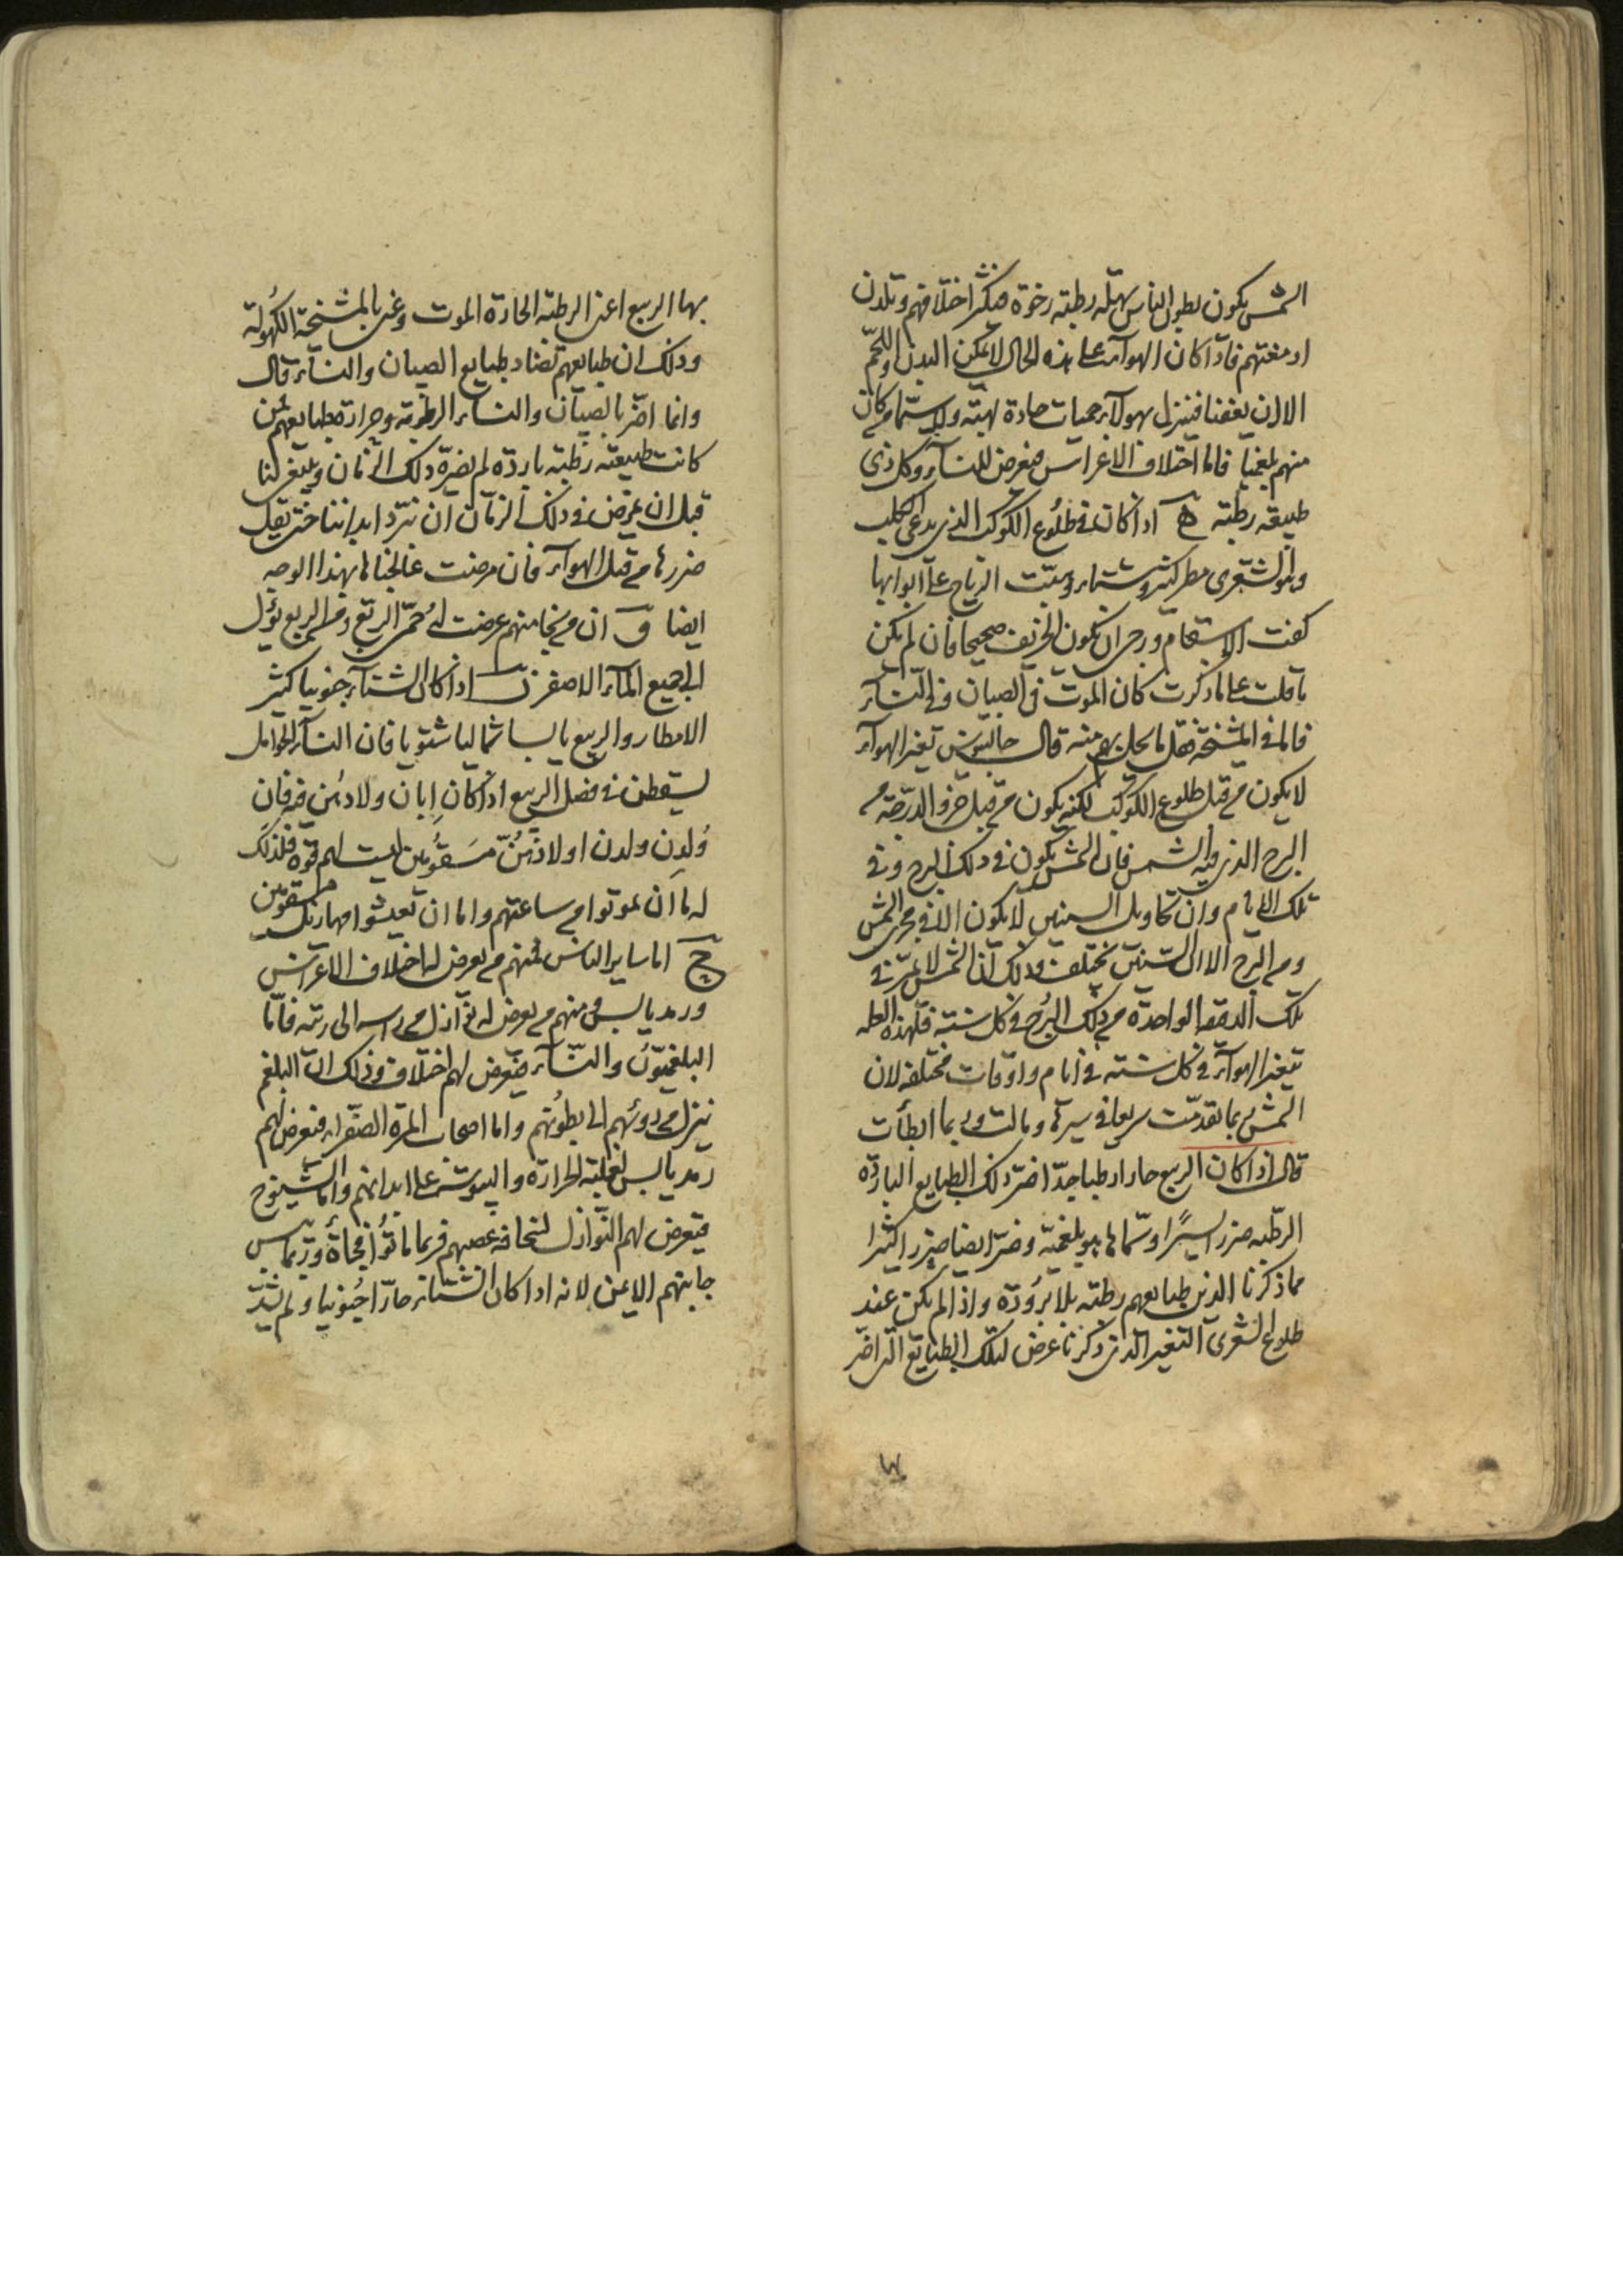 الشمس يكون بطون الناس سهلة رطبة رخوة فيكثر اختلافهم وتلدن
ادمغتهم فاذا كان الهوآء على هذه الحال لا يمكن البدن واللحم
الا ان يعفنا فينزل بهولآء حميات حادة لهبة ولا سيما من كان
منهم بلغميا فاما اختلاف الاغراس فيعرض للنسآء وكل ذي
طبيعة رطبة ۵ اذا كان في طلوع الكوكب الذي يدعى الكلب
وهو الشعرى مطر كثير وشتاء وهبت الرياح على ابوابها
كفت الاسقام ورجى ان يكون الخريف صحيحا فان لم يكن
ما قلت على ما ذكرت كان الموت في الصبيان وفي النسآء
فاما في المشيخة فقل ما يحل بهم منه قال جالينوس تغير الهوآء
لا يكون من قبل طلوع الكوكب لكنه يكون من قبل جزو الدرجة من
البرج الذي فيه الشمس فان الشمس يكون في ذلك البرج وفي
تلك الايام وان تحاويل السنين لا يكون الا في مجرى الشمس
ومن البرج الا ان السنين يختلف وذلك ان الشمس لا تمر في
تلك الدقيقة الواحدة من ذلك البرج في كل سنة فلهذه العلة
تتغير الهوآء في كل سنة في ايام واوقات مختلفة لان
الشمس ربما تقدمت سريعا في سيرها ومالت وربما ابطأت
قال اذا كان الربيع حارا رطبا جدا اضر ذلك الطبايع الباردة
الرطبة ضررا يسيرا وسماها هو بلغمية وضر ايضا ضررا كثيرا
مما ذكرنا الذين طبايعهم رطبة بلا برودة واذا لم يكن عند
طلوع الشعرى التغير الذي ذكرنا عرض لتلك الطبايع التي اضر
بها
بها الربيع اعني الرطبة الحارة الموت وعني بالمشيخة الكهولة
وذلك ان طبايعهم تضاد طبايع الصبيان والنسآء قال
وانما اضر بالصبيان والنسآء الرطوبة وحرارة طبايعهم فمن
كانت طبيعته رطبة باردة لم يضره ذلك الزمان وينبغي لنا
قبل ان يمرض في ذلك الزمان ان نبرد ابداننا حتى يقل
ضررها من قبل الهوآء فان مرضت عالجناها بهذا الوجه
ايضا و ان من نجا منهم عرضت له حمى الربع ومن الربع يؤل
الى جميع المآء الاصفر ز اذا كان الشتآء جنوبيا كثير
الامطار والربيع يابسا شماليا شتويا فان النسآء الحوامل
يسقطن في فصل الربيع اذا كان ابان ولادهن فيه فان
ولدن ولدن اولادهن مسقومين ليست لهم قوة فلذلك
اما ان يموتوا من ساعتهم واما ان يعيشوا مهازيل مسقومين
ح اما ساير الناس فمنهم من يعرض له اختلاف الاغراس
ورمد يابس ومنهم من يعرض له نوآزل من راسه الى رئته فاما
البلغميون والنسآء فيعرض لهم اختلاف وذلك ان البلغم
ينزل من رؤسهم الى بطونهم واما اصحاب المرة الصفراء فيعرض لهم
رمد يابس لغلبة الحرارة واليبوسة على ابدانهم واما الشيوخ
فيعرض لهم النوازل لسخافة عصبهم فربما ماتوا فجأة وربما يبس
جانبهم الايمن لانه اذا كان الشتاء حارا جنوبيا ولم يشتد